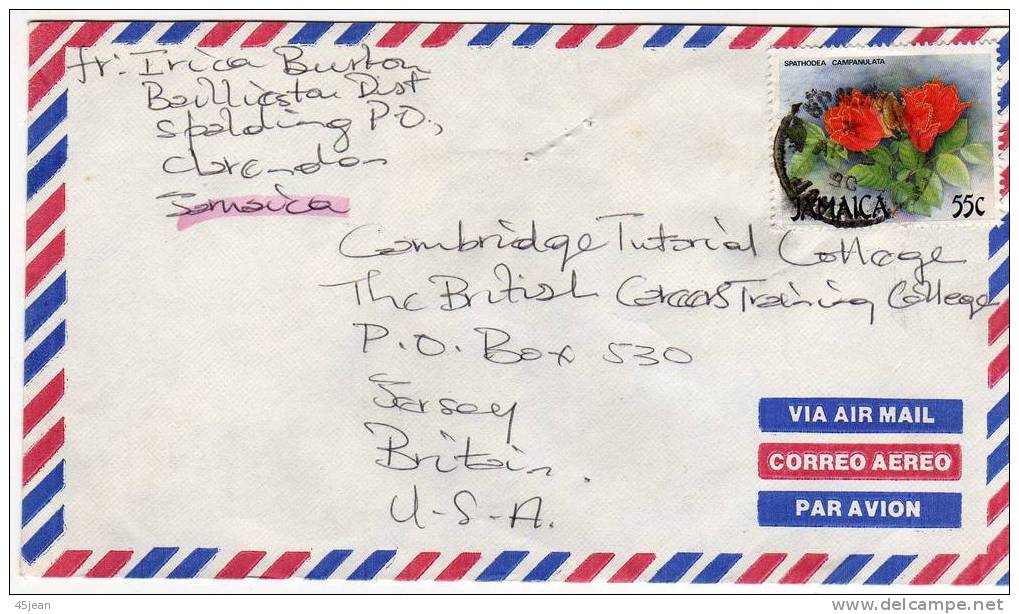 fr: Irica Burton
Baillieston Dist
Spalding P.O.,
Clarendon
Jamaica
SPATHODEA CAMPANULATA
JAMAICA 55c
Cambridge Tutorial College
The British Careers Training College
P.O. Box 530
Jersey
Britain
U-S-A.
VIA AIR MAIL
CORREO AEREO
PAR AVION
45jean
delcampe.net